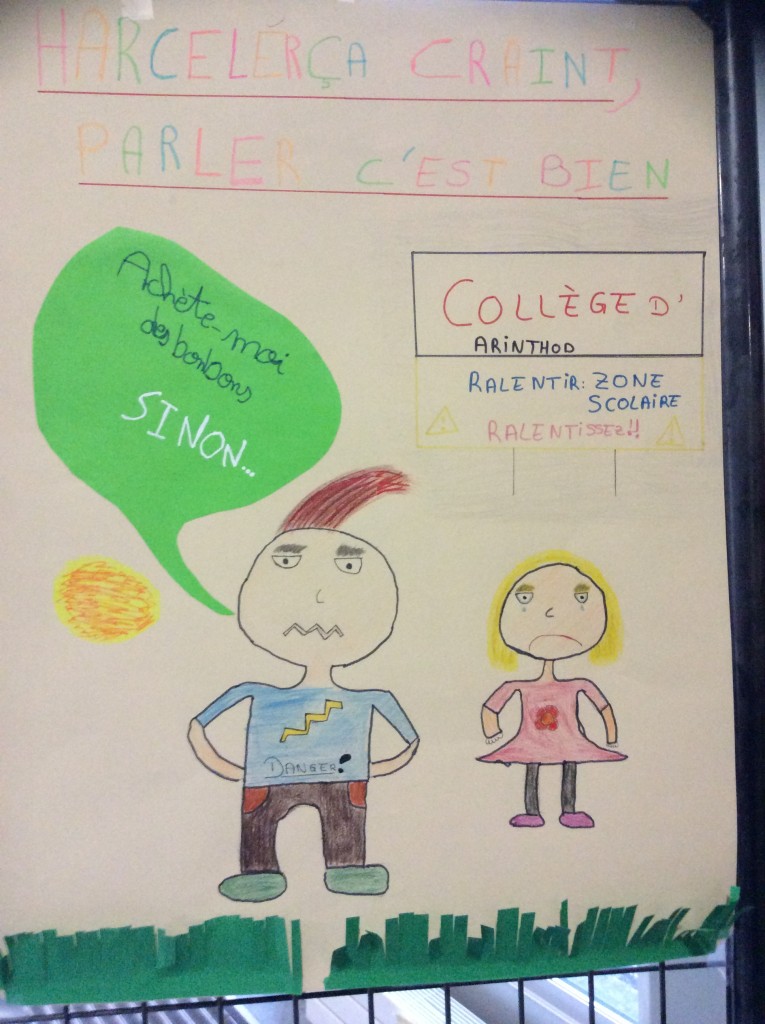 HARCELÉR ÇA CRAINT,
PARLER C'EST BIEN
Achète-moi
des bonbons
SINON...
COLLÈGE D'
ARINTHOD
RALENTIR: ZONE
SCOLAIRE
RALENTISSEZ!!
DANGER!